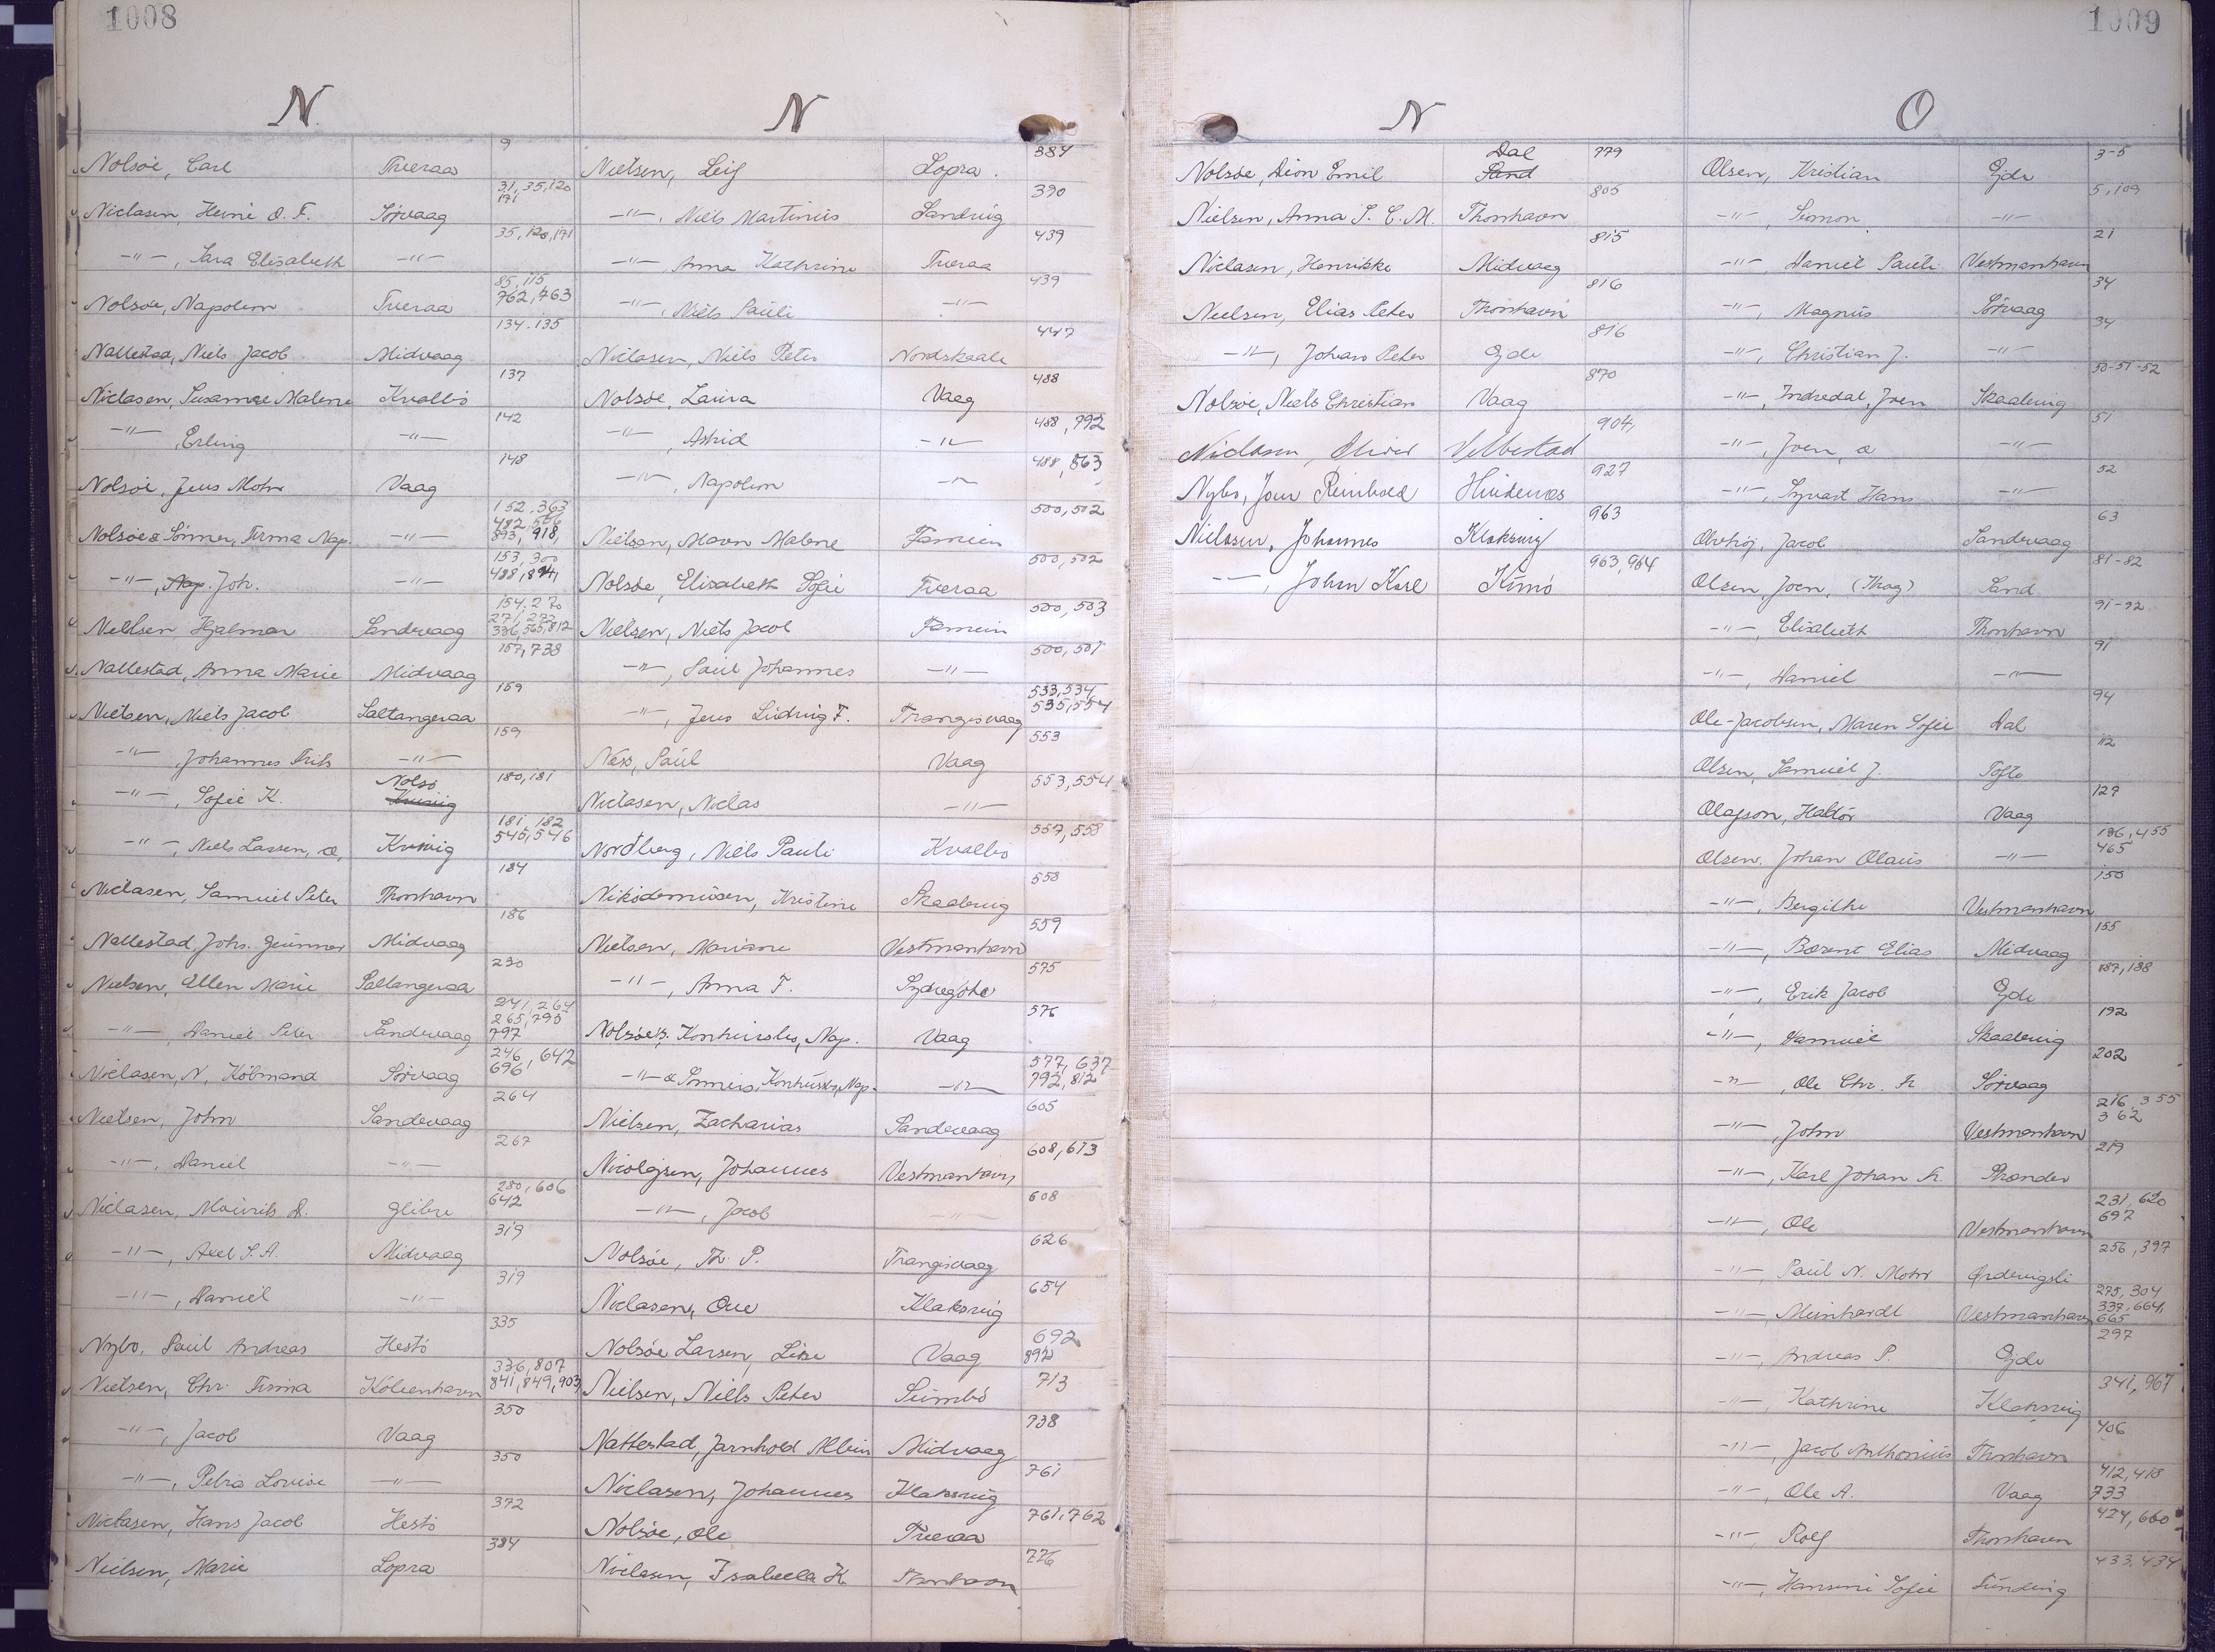 1008
N.
Nolsöe, Carl Tveraa 9
Niclasen, Heine O. F. Sörvaag 31, 35, 120 171
-"-, Sara Elisabeth -"- 35, 120, 171
Nolsöe, Napoleon Tveraa 85, 115 762, 763
Nattestad, Niels Jacob Midvaag 134-135
Niclasen, Susanne Malene Kvalbö 137
-"-, Erling -"- 142
Nolsöe, Jens Mohr Vaag 148
Nolsöe & Sönner, Firma Nap. -"- 152, 363 482, 506 893, 918,
-"-, Nap. Joh. -"- 153, 300 488, 894,
Nielsen Hjalmar Sandevaag 154, 270 271, 272 336, 565, 812
Nattestad, Anna Marie Midvaag 157, 738
Nielsen, Niels Jacob Saltangeraa 159
-"-, Johannes Frits -"- 159
-"-, Sofie K. Nolsö Kvivig 180, 181
-"-, Niels Lassen, æ, Kvivig 181, 182 545, 546
Niclasen, Samuel Peter Thorshavn 184
Nattestad, Johs. Gunnar Midvaag 186
Nielsen, Ellen Marie Saltangeraa 230
-"-, Daniel Peter Sandevaag 241, 264 265, 795 797
Niclasen, N. Köbmand Sörvaag 246, 642 696
Nielsen, John Sandevaag 264
-"-, Daniel -"- 267
Niclasen, Mourits D. Glibre 280, 606 642
-"-, Axel S. A. Midvaag 319
-"-, Daniel -"- 319
Nybo, Paul Andreas Hestö 335
Nielsen, Chr. Firma Kobenhavn 336, 807 841, 849, 903
-"-, Jacob Vaag 350
-"-, Petra Louise -"- 350
Niclasen, Hans Jacob Hestö 372
Nielsen, Marie Lopra 384
N
Nielsen, Leif Lopra. 384
-"-, Niels Martinus Sandvig 390
-"- Anna Kathrine Tveraa 439
-"-, Niels Pauli -"- 439
Niclasen, Niels Peter Nordskaale 447
Nolsöe, Laura Vaag 488
-"-, Astrid -"- 488, 792
-"-, Napoleon -"- 488, 863
Nielsen, Maren Malene Famien 500, 502
Nolsöe, Elisabeth Sofie Tveraa 500, 502
Nielsen, Niels Jacob Famien 500, 503
-"-, Paul Johannes -"- 500, 501
-"-, Jens Ludvig F. Trangisvaag 533, 534 535, 554
Næs, Paul Vaag 553
Niclasen, Niclas -"- 553, 554
Nordberg, Niels Pauli Kvalbö 557, 558
Nikodemusen, Kristine Skaalevig 558
Nielsen, Mariane Vestmanhavn 559
-"-, Anna F. Sydregöte 575
Nolsöe's, Konkursbo, Nap. Vaag 576
-"- & Sønners, Konkursbo, Nap. -"- 577, 637 792, 812
Nielsen, Zacharias Sandevaag 605
Nicolajsen, Johannes Vestmanhavn 608, 613
-"-, Jacob -"- 608
Nolsöe, Th. P. Trangisvaag 626
Niclasen, Ove Klaksvig 654
Nolsöe Larsen, Lise Vaag 692 892
Nielsen, Niels Peter Sumbö 713
Nattestad, Jarnhold Albin Midvaag 738
Niclasen, Johannes Klaksvig 761
Nolsöe, Ole Tveraa 761, 762
Niclasen, Isabella K. Thorshavn 776
1009
N
Nolsöe, Dion Emil Dal Sand 779
Nielsen, Anna S. C. M. Thorshavn 805
Niclasen, Henrikke Midvaag 815
Nielsen, Elias Peter Thorshavn 816
-"-, Johan Peter Ejde 816
Nolsöe, Niels Christian Vaag 870
Niclasen, Oliver Velbestad 904,
Nybo, Joen Reinhold Hvidenæs 927
Niclasen, Johannes Klaksvig 963
-"-, John Karl Kunö 963, 964
O
Olsen, Kristian Ejde 3-5
-"-, Simon -"- 5, 109
-"-, Daniel Pauli Vestmanhavn 21
-"-, Magnus Sörvaag 34
-"-, Christian J. -"- 34
-"-, Indredal, Joen Skaalevig 50-51-52
-"-, Joen, æ -"- 51
-"-, Syvart Hans -"- 52
Olvhöj, Jacob Sandevaag 63
Olsen, Joen, (Krog) Sand 81-82
-"-, Elisabeth Thorshavn 91-92
-"-, Daniel -"- 91
Ole-Jacobsen, Maren Sofie Dal 94
Olsen, Samuel J. Tofte 112
Olafson, Haldór Vaag 127
Olsen, Johan Olaus -"- 136, 455 465
-"-, Bergithe Vestmanhavn 150
-"-, Barent Elias Midvaag 155
-"-, Erik Jacob Ejde 187, 188
-"-, Samuel Skaalevig 192
-"-, Ole Chr. Fr. Sörvaag 202
-"-, John Vestmanhavn 216, 355 362
-"-, Karl Johan Fr. Strander 219
-"-, Ole Vestmanhavn 231, 620 697
-"-, Paul N. Mohr Ørdevigsli 256, 397
-"-, Meinhardt Vestmanhavn 275, 304 337, 664, 665
-"-, Andreas P. Ejde 297
-"-, Kathrine Klaksvig 341, 967
-"-, Jacob Anthonius Thorshavn 406
-"-, Ole A. Vaag 412, 418 733
-"-, Rolf Thorshavn 424, 660
-"-, Hansine Sofie Funding 433, 434